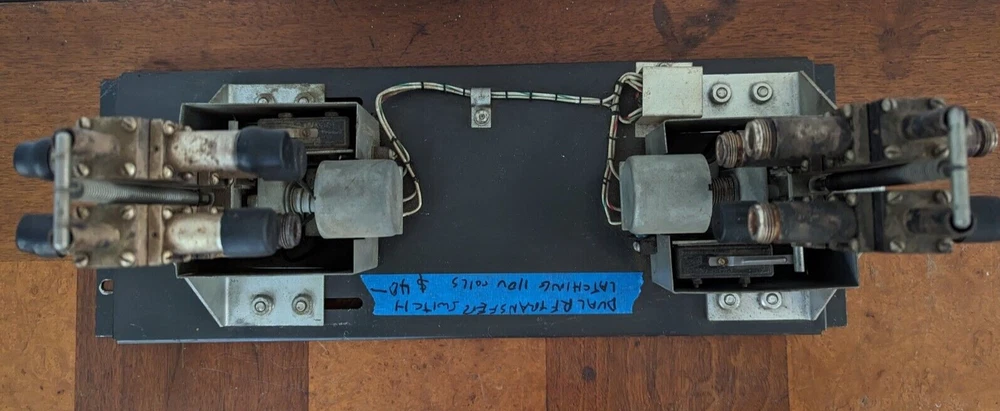 DUAL RF TRANSFER SWITCH
LATCHING 110V COILS $40-